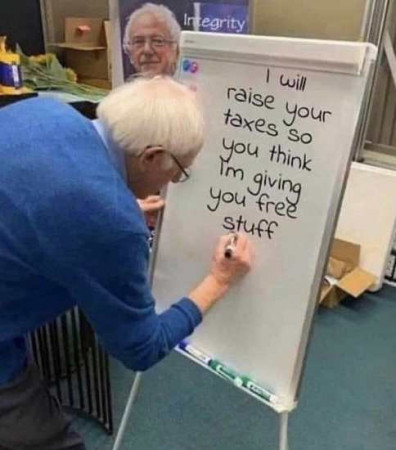 Integrity
I will
raise your
taxes so
you think
I'm giving
you free
stuff